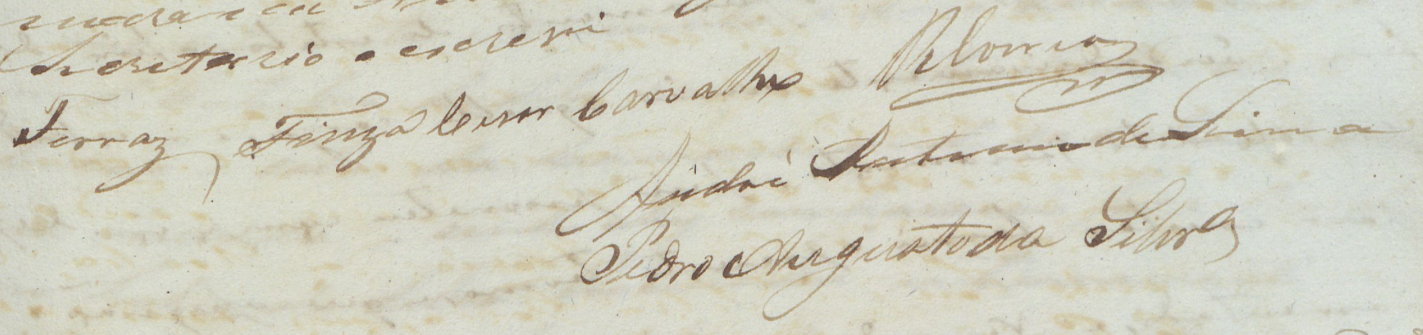 Secretario o escrevi
Ferraz, Tinza Cesar Carvalho
André Antonio de Lima
Pedro Augusto da Silva